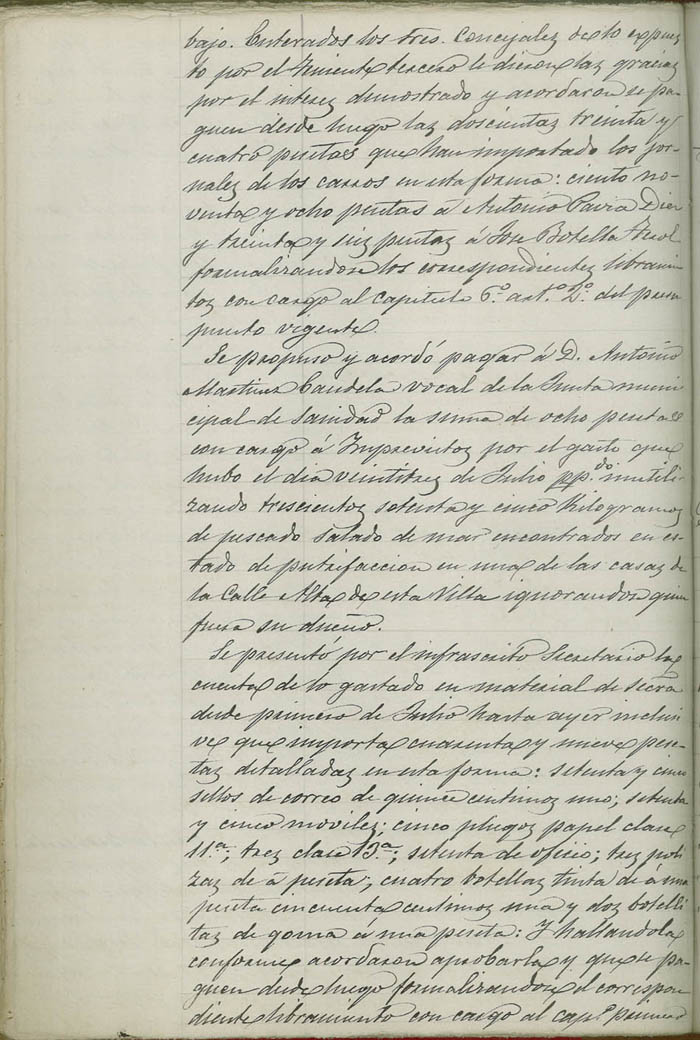 bajo. Enterados los Sres. Concejales de lo expues
to por el Teniente tercero le dieron las gracias
por el interes demostrado y acordaron se pa-
guen desde luego las doscientas treinta y
cuatro pesetas que han importado los jor-
nales de los carros en esta forma: ciento no-
venta y ocho pesetas á Antonio Pavia Diez
y treinta y seis pesetas á Jose Botella
formalizandose los correspondientes libramien
tos con cargo al capitulo 6.º art.º 2.º del presu
puesto vigente.
Se propuso y acordó pagar á D. Antonio
Martinez Candela vocal de la Junta muni
cipal de Sanidad la suma de ocho pesetas
con cargo á Imprevistos por el gasto que
hubo el dia veintitres de Julio pp.do inutili
zando trescientos setenta y cinco Kilogramos
de pescado salado de mar encontrados en es-
tado de putrifaccion en una de las casas de
la Calle Alta de esta Villa ignorandose quien
fuera su dueño.
Se presentó por el infrascrito Secretario la
cuenta de lo gastado en material de Secra
desde primero de Julio hasta ayer inclusi
ve que importa cuarenta y nueve pese-
tas detalladas en esta forma: setenta y cinco
sellos de correo de quince centimos uno; setenta
y cinco moviles; cinco pliegos papel clase
11.ª; tres clase 13.ª; setenta de oficio; tres poli
zas de á peseta; cuatro botellas tinta de á una
peseta cincuenta centimos una y dos botelli
tas de goma á una peseta: Y hallandola
conforme acordaron aprobarla y que se pa-
guen desde luego formalizandose el correspon
diente libramiento con cargo al cap.º primero